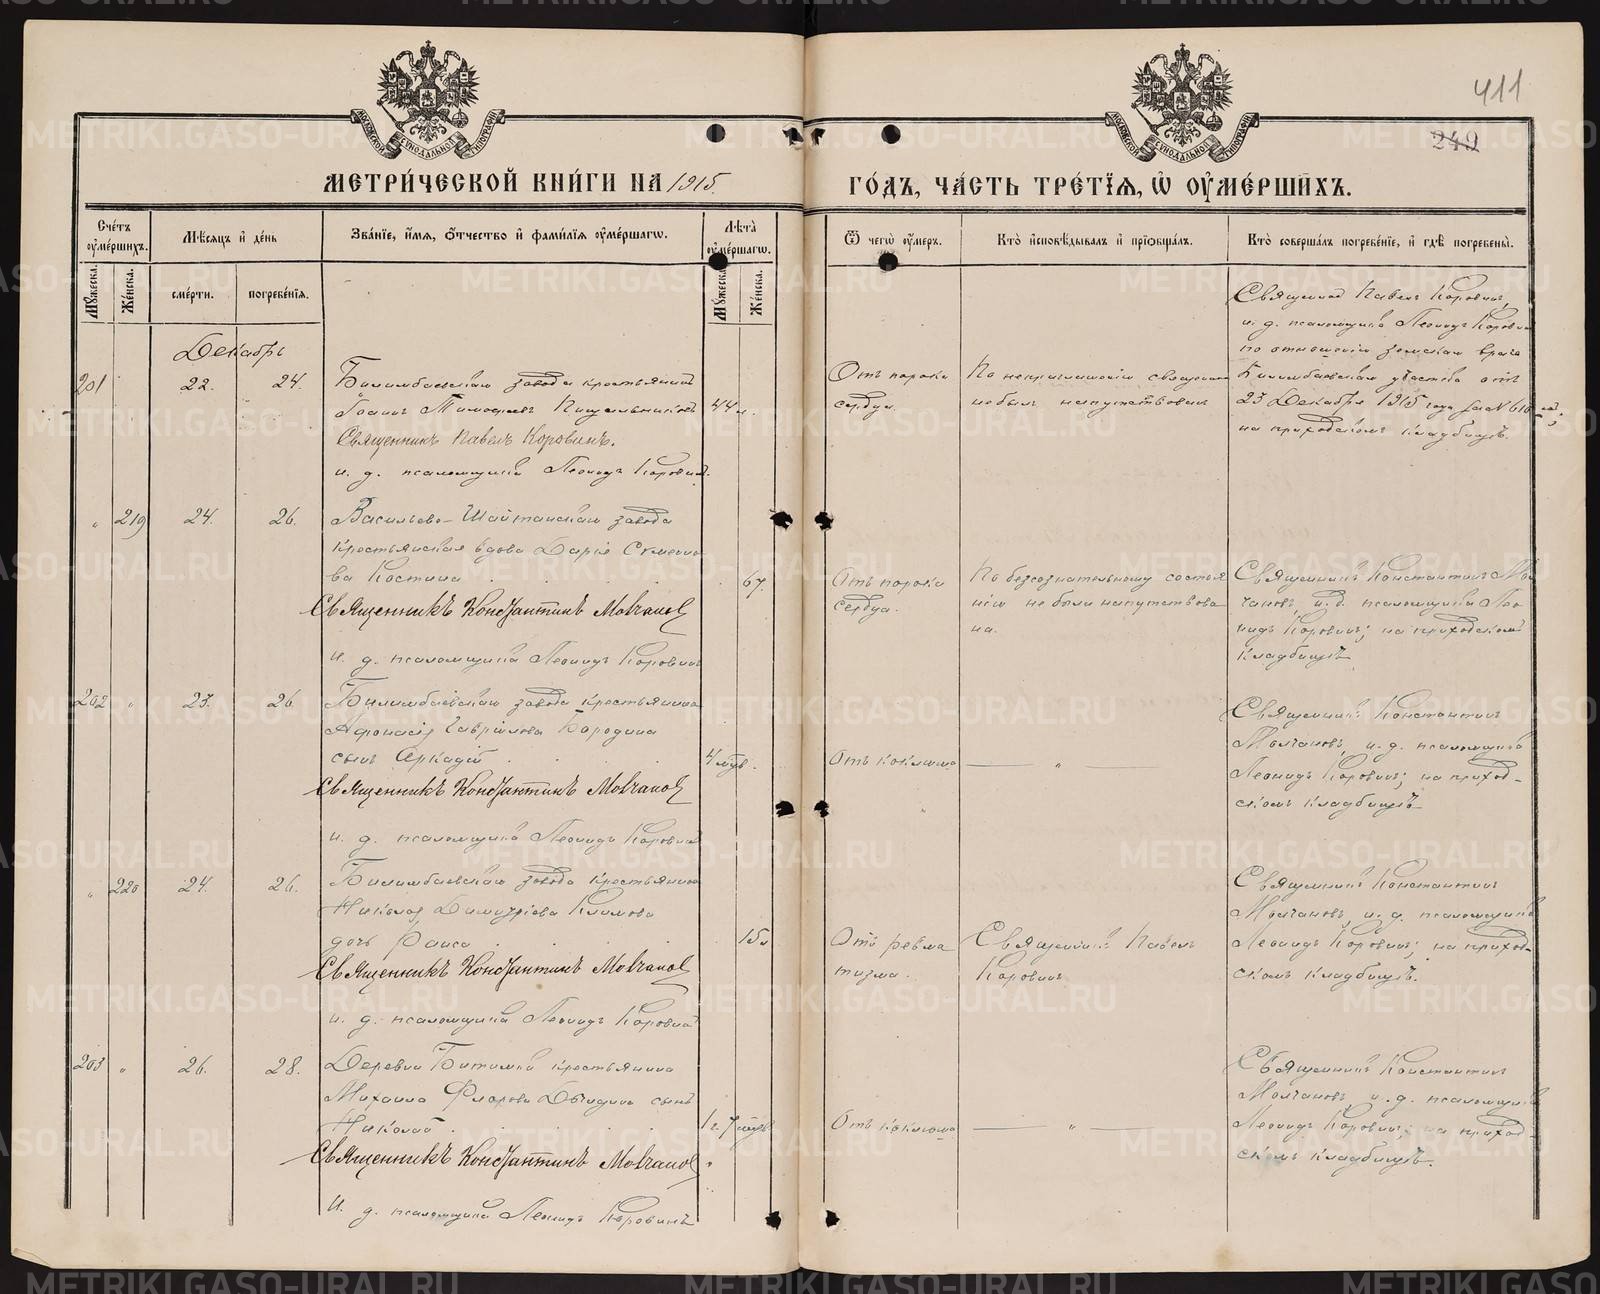 411
249
МОСКОВСКОЙ СѴНОДАЛЬНОЙ ТИПОГРАФІИ
МОСКОВСКОЙ СѴНОДАЛЬНОЙ ТИПОГРАФІИ
МЕТРИ́ЧЕСКОЙ КНИ́ГИ НА 1915.
ГО́ДЪ, ЧА́СТЬ ТРЕ́ТІЯ, Ѡ҆ ОУ҆МЕ́РШИХЪ.
Сче́тъ оу҆ме́ршихъ.
Мѣ́сяцъ и҆ де́нь
Зва́нїе, и҆́мѧ, ѻ҆́тчество и҆ фами́лїѧ оу҆ме́ршагѡ.
Лѣ́та оу҆ме́ршагѡ.
Ѿ чегѡ̀ оу҆́меръ.
Кто̀ и҆сповѣ́дывалъ и҆ прїѡбща́лъ.
Кто̀ соверша́лъ погребе́нїе, и҆ гдѣ̀ погребены̀.
Му́жеска.
Же́нска.
сме́рти.
погребе́нїѧ.
Му́жеска.
Же́нска.
Декабрь
201
22.
24.
Билимбаевскаго завода крестьянинъ
Іоаннъ Тимофеевъ Пищальниковъ
44 л.
Священникъ Павелъ Коровинъ.
и. д. псаломщика Леонидъ Коровинъ.
Отъ порока
сердца.
По неприглашенію священника
не былъ напутствованъ
Священникъ Павелъ Коровинъ,
и. д. псаломщика Леонидъ Коровинъ
по отношенію земскаго врача
Билимбаевскаго участка отъ
23 Декабря 1915 года за № 616
на приходскомъ кладбищѣ.
"
219
24.
26.
Васильево-Шайтанскаго завода
крестьянская вдова Дарія Семено
ва Костина
67.
Священникъ Константинъ Молчановъ
и. д. псаломщика Леонидъ Коровинъ
Отъ порока
сердца.
По безсознательному состоя
нію не была напутствова
на.
Священникъ Константинъ Мол
чановъ, и. д. псаломщика Лео
нидъ Коровинъ; на приходскомъ
кладбищѣ.
202
"
23.
26
Билимбаевскаго завода крестьянина
Афонасія Гаврілова Бородина
сынъ Аркадій
4 мѣс.
Священникъ Константинъ Молчановъ
и. д. псаломщика Леонидъ Коровинъ
Отъ коклюша
"
Священникъ Константинъ
Молчановъ, и. д. псаломщика
Леонидъ Коровинъ; на приход-
скомъ кладбищѣ
"
220
24.
26.
Билимбаевскаго завода крестьянина
Николая Димитріева Климова
дочь Раиса
15 л
Священникъ Константинъ Молчановъ
и. д. псаломщика Леонидъ Коровинъ
Отъ ревма
тизма.
Священникъ Павелъ
Коровинъ
Священникъ Константинъ
Молчановъ, и. д. псаломщика
Леонидъ Коровинъ; на приход-
скомъ кладбищѣ.
203
"
26.
28.
Деревни Битимки крестьянина
Михаила Флорова сынъ
Николай
1 г. 7 мѣс
Священникъ Константинъ Молчановъ
и. д. псаломщика Леонидъ Коровинъ
Отъ коклюша
"
Священникъ Константинъ
Молчановъ, и. д. псаломщика
Леонидъ Коровинъ; на приход-
скомъ кладбищѣ.
METRIKI.GASO-URAL.RU